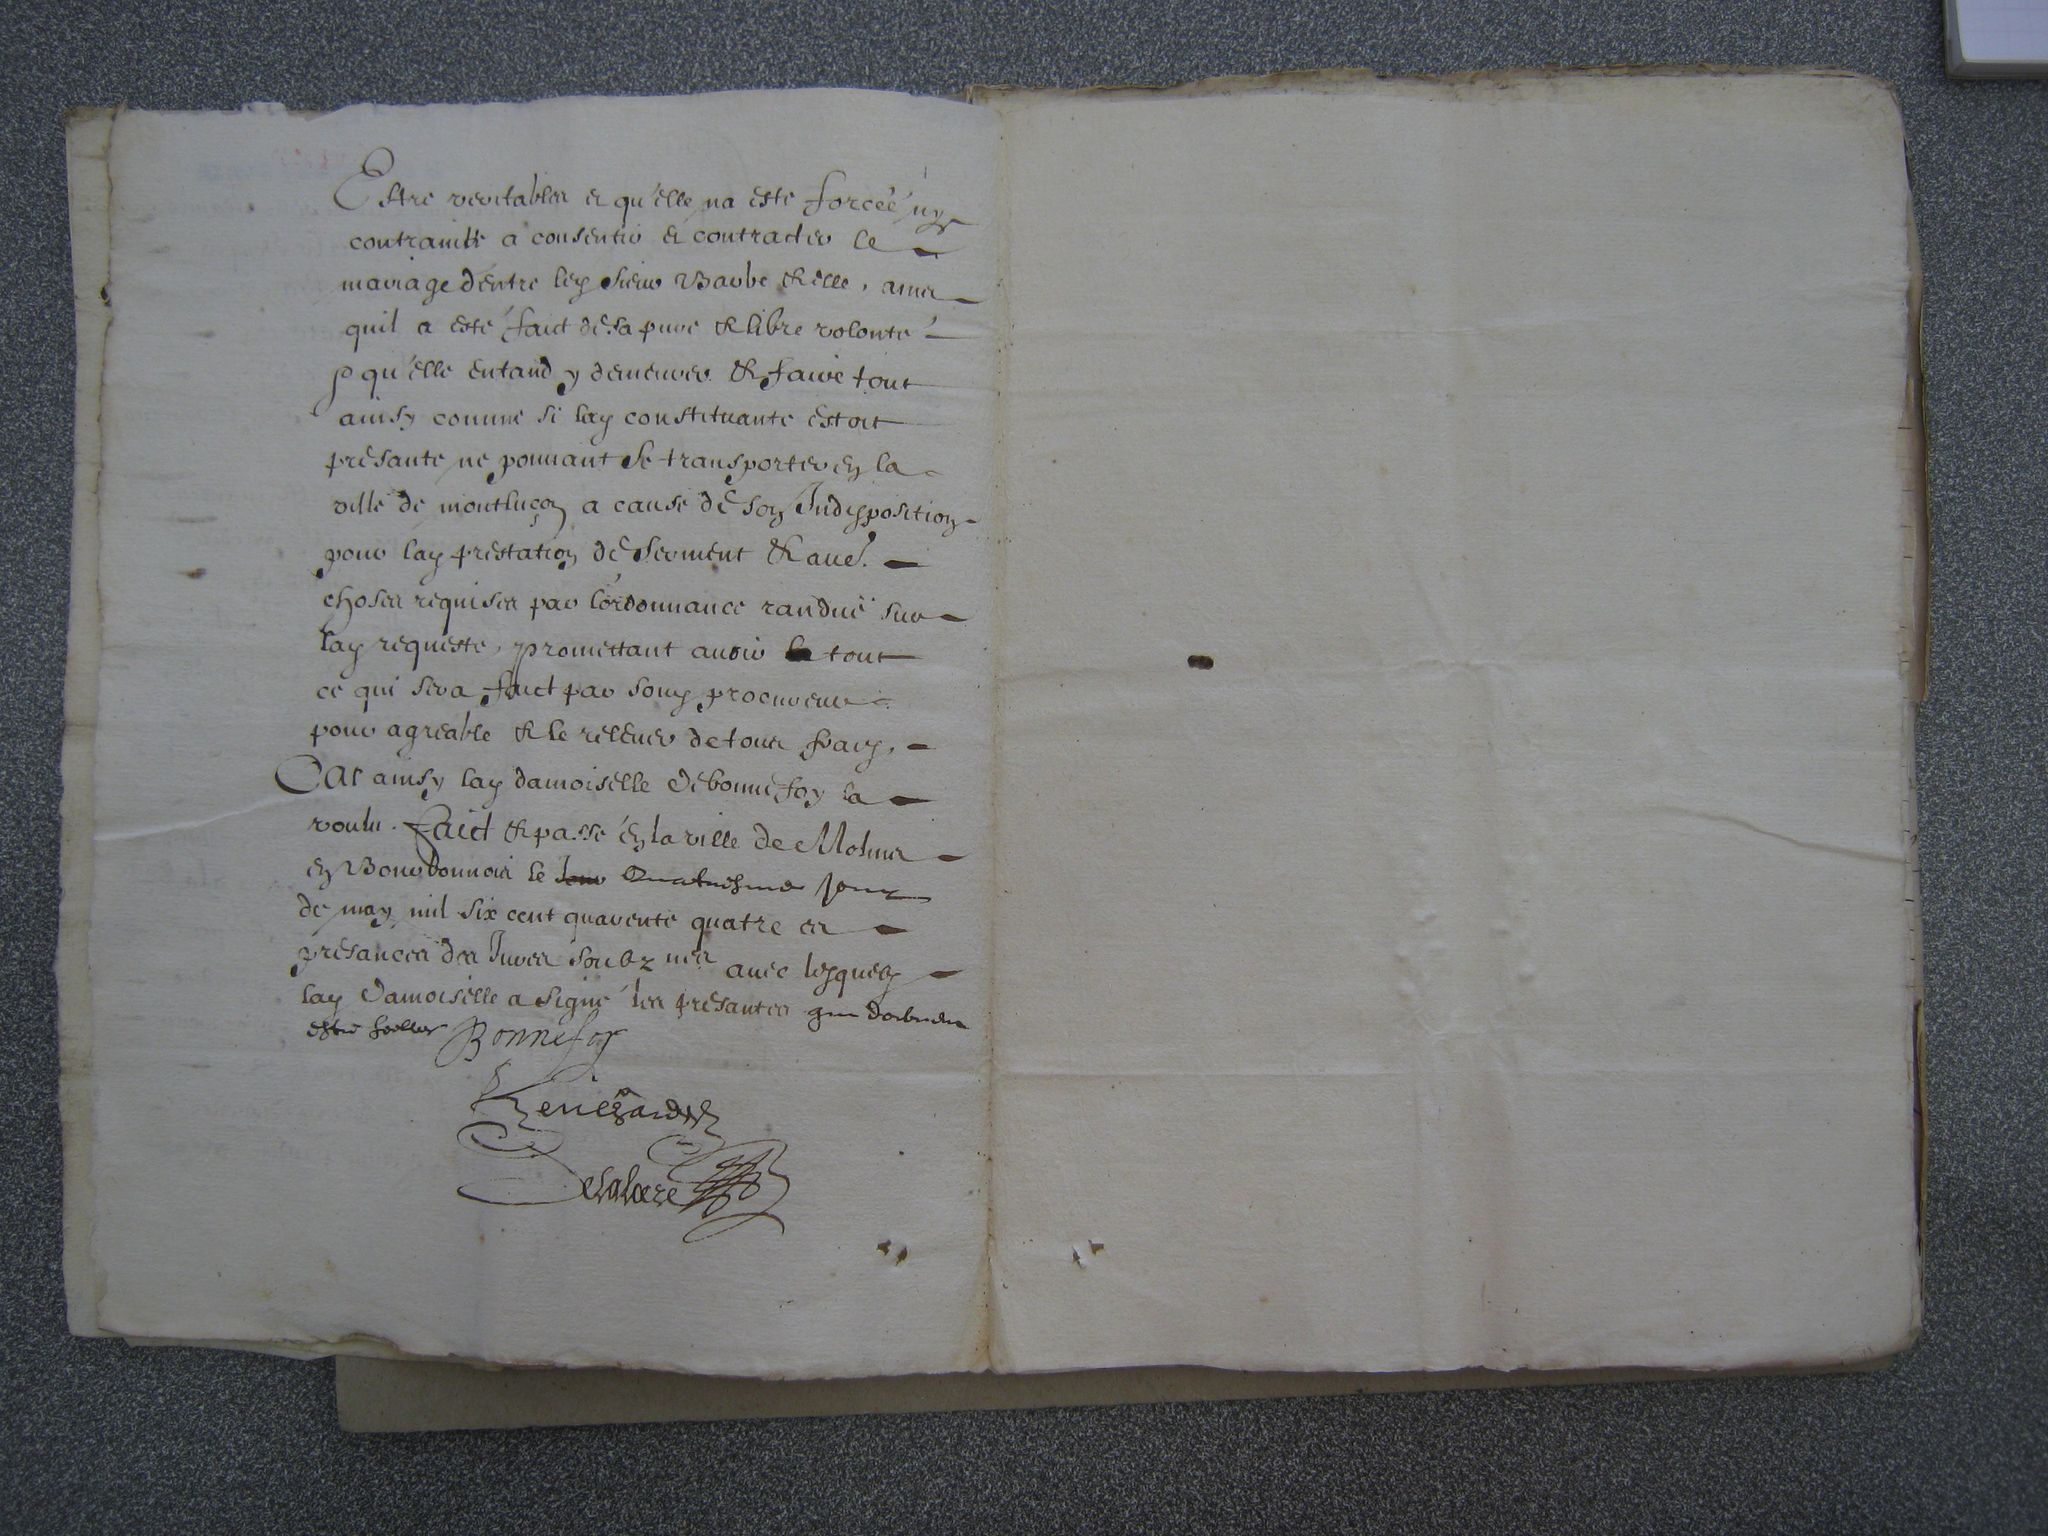 Estre veritables et qu'elle na esté forcéé ny
contrainte a consentir et contracter le
mariage d'entre led sieur Barbe & elle, ains
quil a esté faict de sa pure & libre volonté
qu'elle entand y demeurer & faire tout
ainsy comme si lad constituante estoit
présante ne pouuant se transporter en la
ville de montluçon a cause de son Indisposition
pour lad prestation de serment & aues.
choses requises par l'ordonnance randuë sur
lad requeste, promettant auoir tout
ce qui sera faict par sond procureur
pour agreable & le releuer de tous frais,
Car ainsy lad damoiselle de bonnefoy la
voulu. Faict & passé en la ville de Molins
en Bourbonnois le quatriesme jour
de may mil six cent quarente quatre es
présances des Jures soubz nés auec lesquelz
lad damoiselle a signé les présantes qui doibuent
estre scellés Bonnefoy